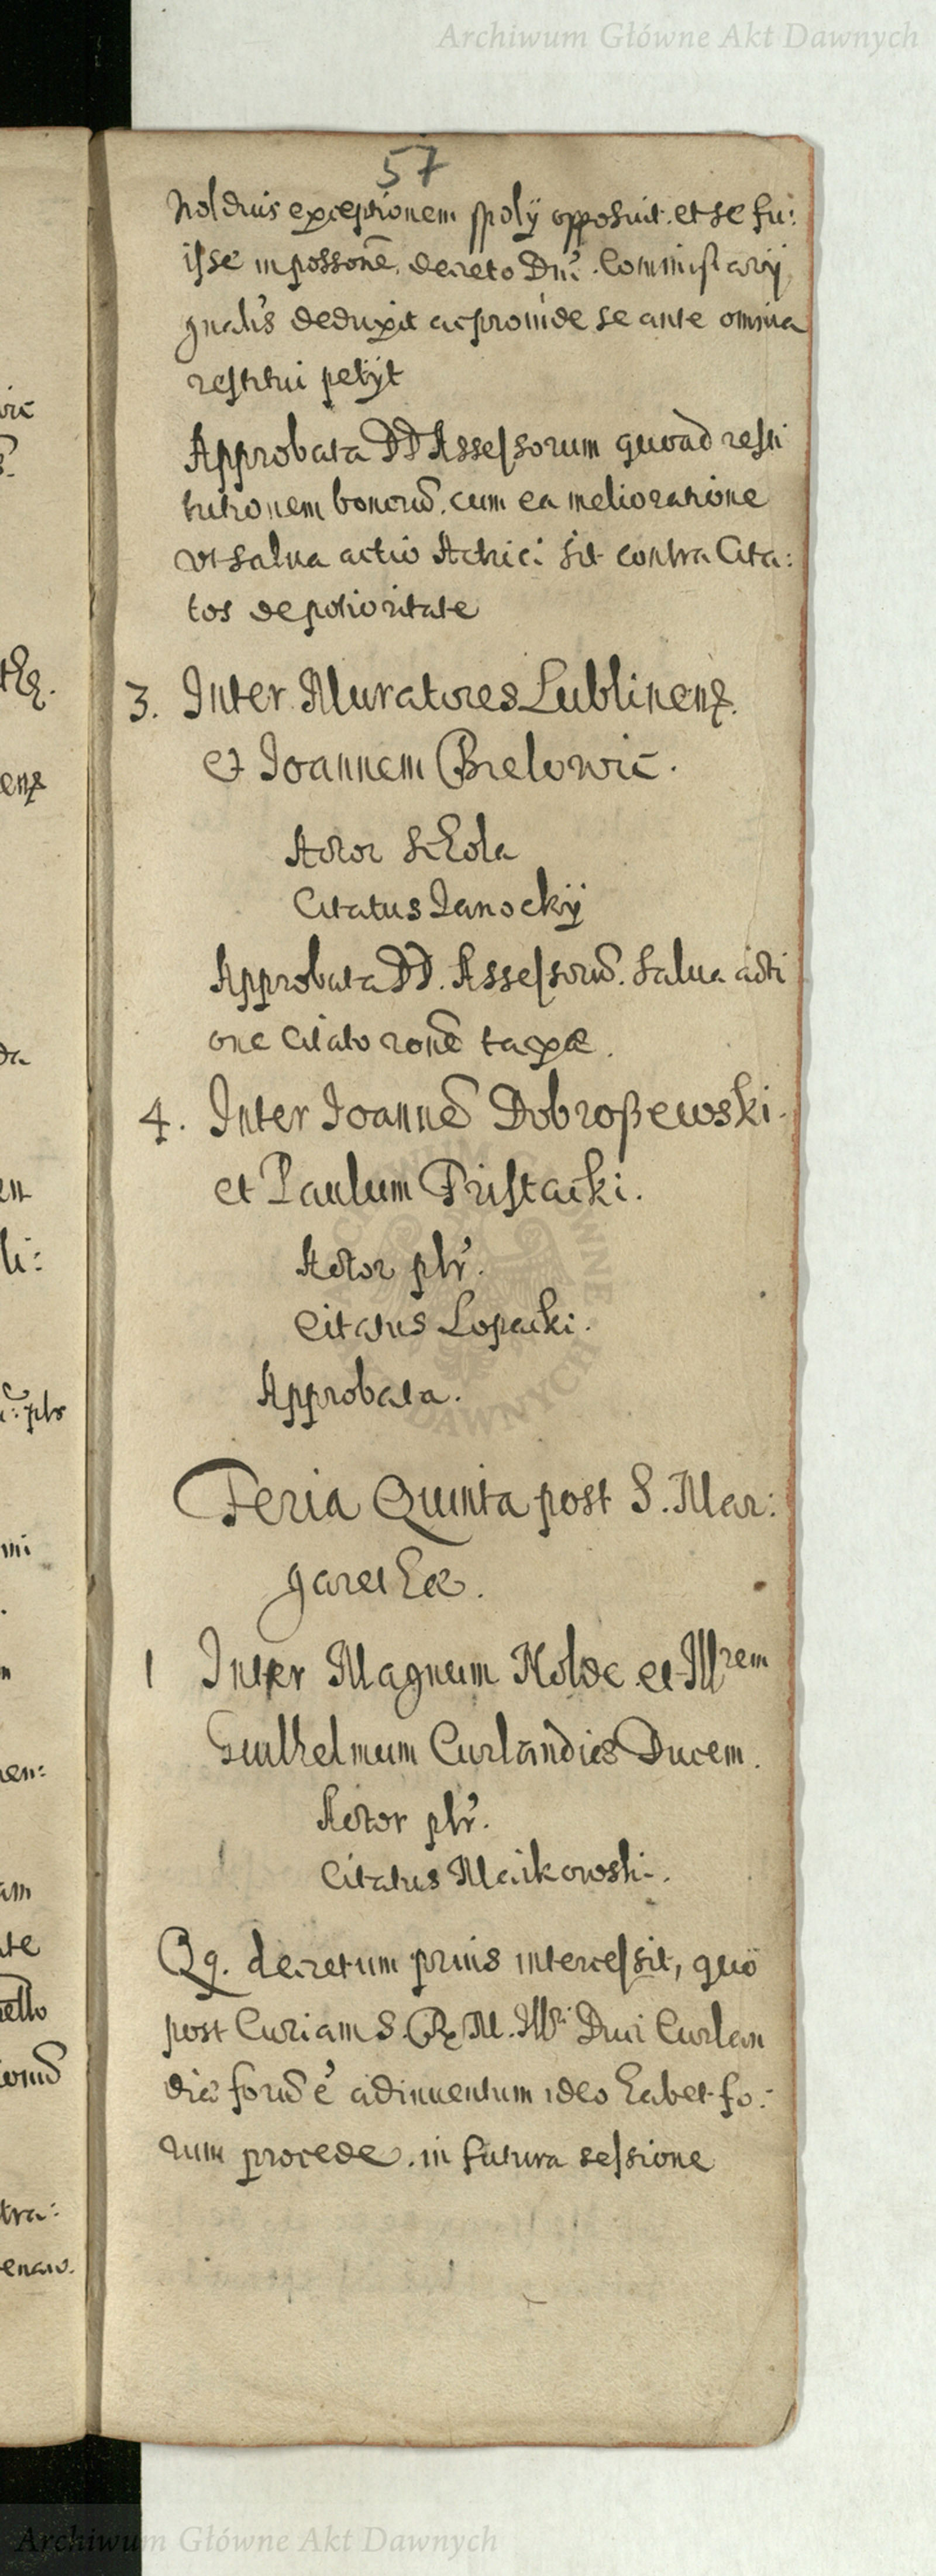 Archiwum Główne Akt Dawnych
57
Noldius exceptionem spolÿ opposuit. et se fu:
isse in possonē. decreto Dni. Commissarÿ
gnalis deduxit ac proinde se ante omnia
restitui petÿt
Approbata DD Assessorum quoad resti
tutionem bonorū. cum ea melioratione
vt salua actio Actrici sit contra Cita:
tos de potioritate
3. Inter Muratores Lublinens.
et Joannem Brelowic.
Actor Schola
Citatus Janockÿ
Approbata DD. Assessorū. salua acti
one Citato rone taxæ.
4. Inter Joannē Dobroßewski.
et Paulum Pristacki.
Actor plr.
Citatus Lopacki.
Approbata.
Feria Quinta post S. Mar:
garethæ.
1 Inter Magnum Nolde et Illrem
Guilhelmum Curlandiæ Ducem.
Actor plr.
Citatus Maikowski.
Qq. decretum prius intercessit, quo
post Curiam S. R. M. Illri Duci Curlan
diæ forū ē adinuentum ideo habet fo:
rum procede. in futura sessione
Archiwum Główne Akt Dawnych